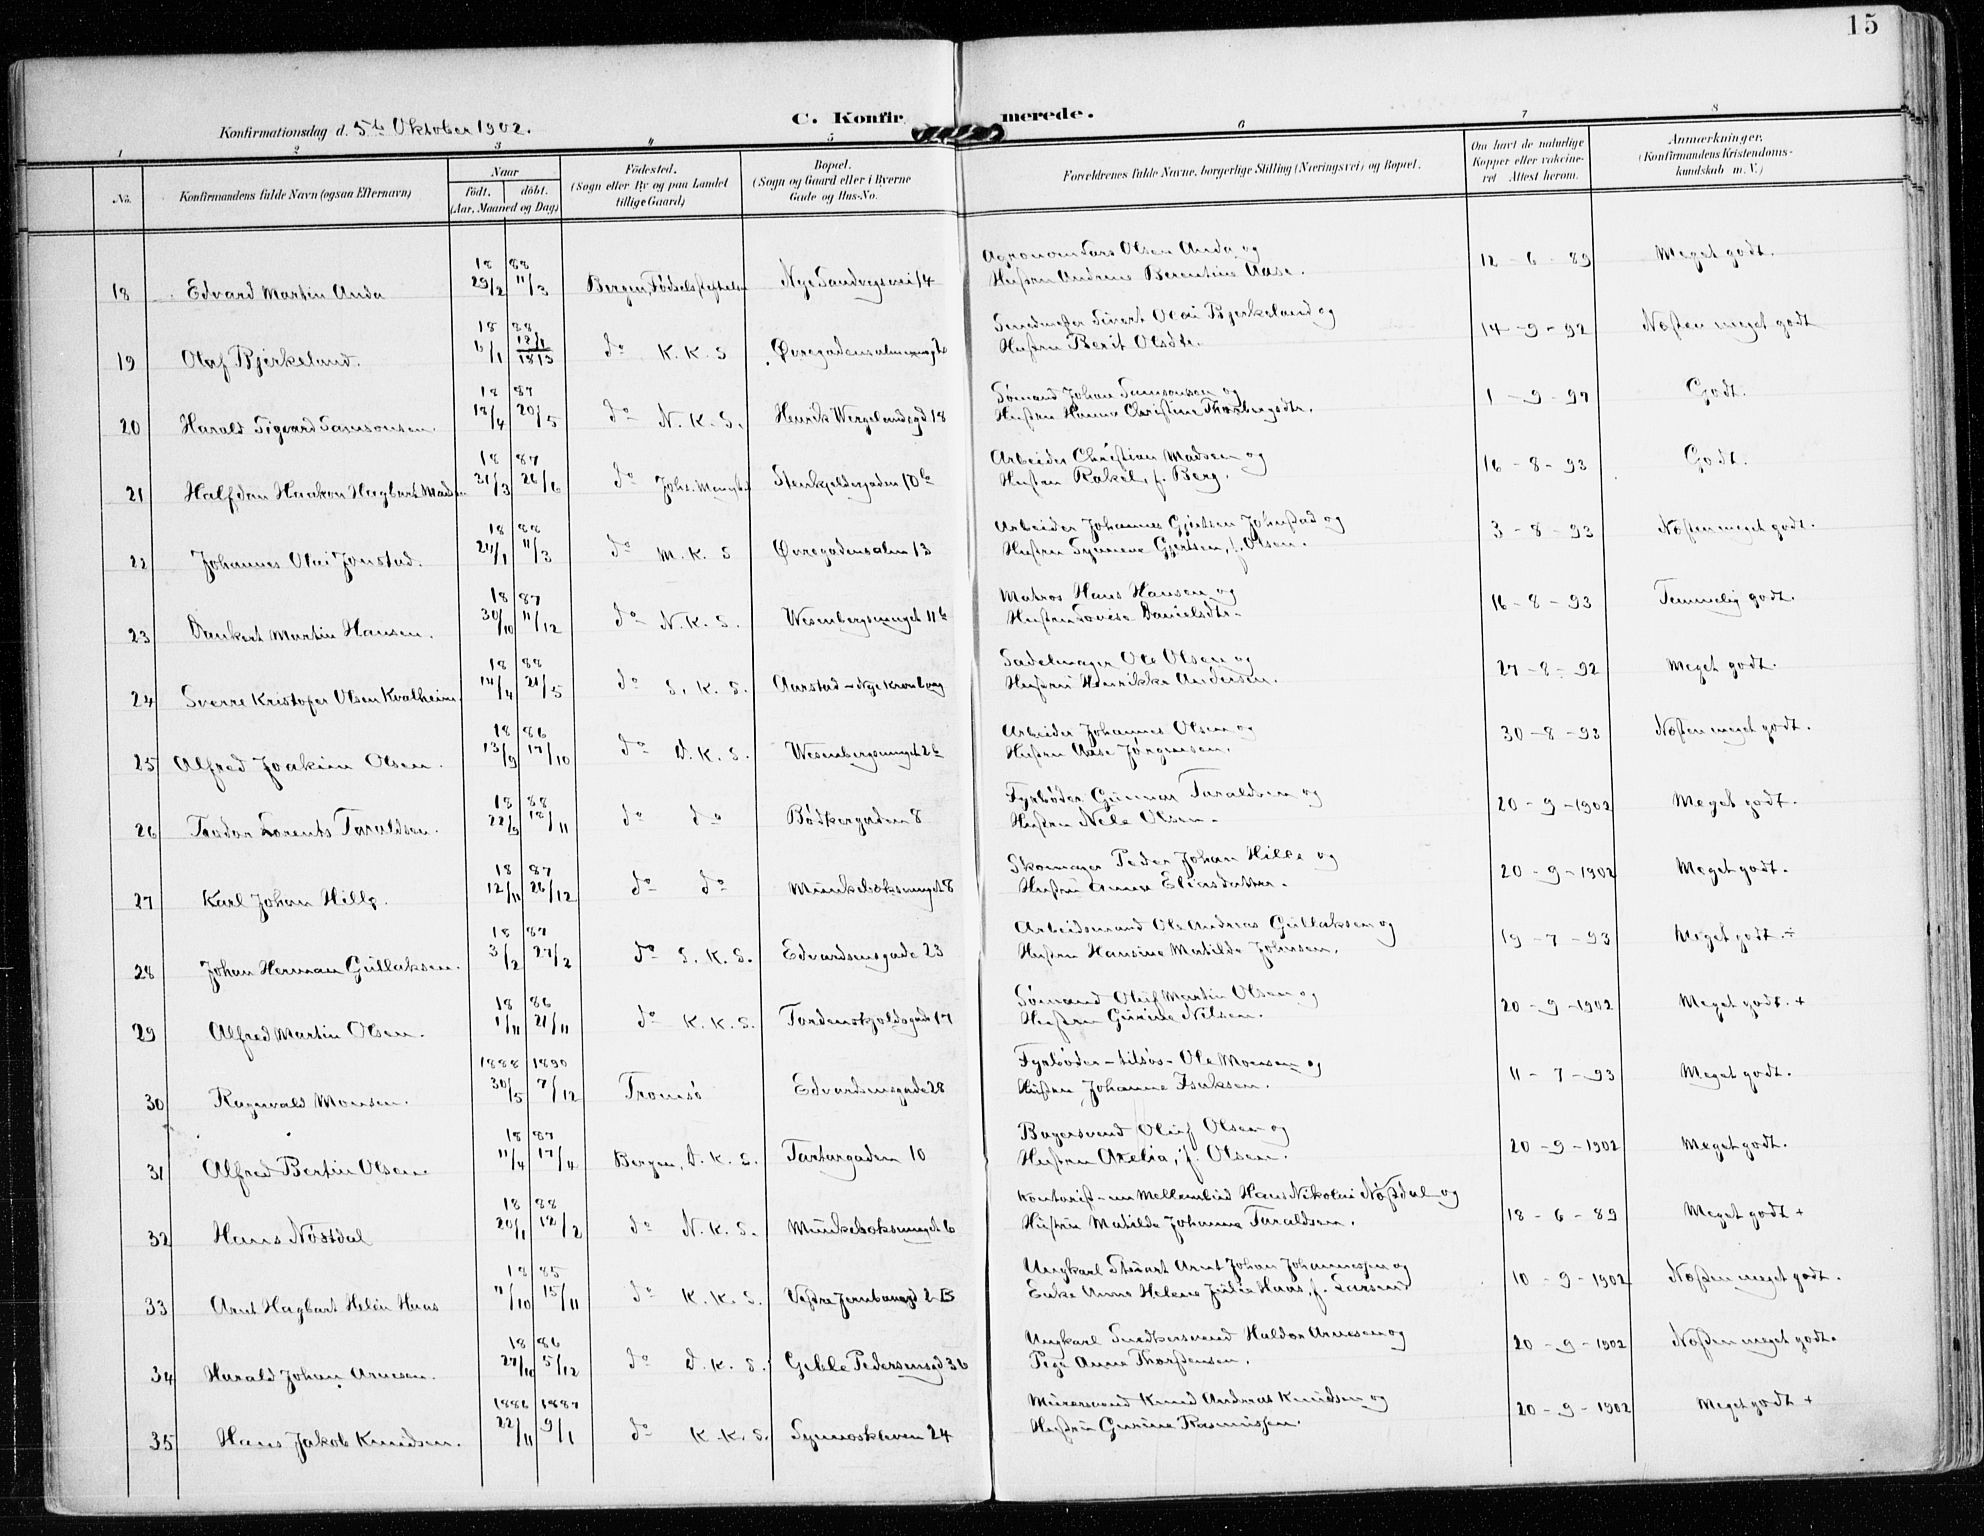 15
C. Konfirmerede.
Konfirmationsdag d. 5te Oktober 1902.
1 2 3 4 5 6 7 8
No. Konfirmandens fulde Navn (ogsaa Efternavn)
Naar
født. døbt.
(Aar, Maaned og Dag)
Fødested.
(Sogn eller By og paa Landet
tillige Gaard)
Bopæl.
(Sogn og Gaard eller i Byerne
Gade og Hus-No.
Forældrenes fulde Navne, borgerlige Stilling (Næringsvei) og Bopæl.
Om havt de naturlige
Kopper eller vakcine-
ret Attest herom.
Anmærkninger.
(Konfirmandens Kristendoms-
kundskab m. V.)
18 88 Agronom Lars Olsen Anda og
18 Edvard Martin Anda 29/2 11/3 Bergen, Nye Sandvigsvei 14 Hustru Andrine Berentine Aase. 12-6-89 Meget godt.
18 88 Smedmester Sivert Olai Bjerkeland og
19 Olaf Bjerkeland. 6/1 12/1 do K.K.S Hustru Berit Olsdtr. 14-9-92 Næsten meget godt
18 87 Sømand Johan Samsonsen og
20 Harald Sigvard Samsonsen. 18/4 20/5 do N.K.S. Henrik Wergelandsgd 18 Hustru Hanna Christine Thorbergsdtr. 1-9-97 Godt.
18 87 Arbeider Christian Madsen og
21 Halfdan Haakon Hagbart Madsen 31/3 26/6 do Stenkjeldergaden 10b Hustru Rakel, f. Berg. 16-8-93 Godt.
18 88 Arbeider Johannes Gjertsen Johnstad og
22 Johannes Olai Jonstad. 24/1 11/3 do M.K.S Øvregadensalm 13 Hustru Synneve Gjertsen, f. Olsen. 3-8-93 Næsten meget godt.
18 87 Matros Hans Hansen og
23 Dankert Martin Hansen. 30/10 11/12 do N.K.S. Wesenbergsmuget 11b Hustru Lovise Danielsdtr. 16-8-93 Temmelig godt.
18 88 Sadelmager Ole Olsen og
24 Sverre Kristofer Olsen Kvalheim. 14/4 21/5 do S.K.S. Aarstad - Nye Kronborg Hustru Henrikke Andersen. 27-8-92 Meget godt.
18 86 Arbeider Johannes Olsen og
25 Alfred Joakim Olsen. 13/9 17/10 do D.K.S. Wesenbergsmuget 2b Hustru Aase Jørgensen. 30-8-93 Næsten meget godt.
18 88 Fyrbøder Gunnar Taraldsen og
26 Teodor Lorents Taraldsen. 22/9 18/11 do do Bødkergaden 8 Hustru Nele Olsen. 20-9-1902 Meget godt.
18 87 Skomager Peder Johan Hille og
27 Karl Johan Hille. 12/11 26/12 do do Munkeboksmuget 8 Hustru Anna Eliasdatter. 20-9-1902 Meget godt.
18 87 Arbeidsmand Ole Andreas Gullaksen og
28 Johan Herman Gullaksen. 3/2 27/2 do S.K.S. Edvardsensgade 23 Hustru Hansine Matilde Johnsen. 19-7-93 Meget godt.÷
18 86 Sømand Oluf Martin Olsen og
29 Alfred Martin Olsen. 1/11 21/11 do K.K.S. Tordenskjoldsgade 17 Hustru Gurine Nilsen. 20-9-1902 Meget godt. +
1888 1890 Fyrbøder - tilsøs - Ole Monsen og
30 Ragnvald Monsen. 30/5 7/12 Tromsø Edvardsensgade 28 Hustru Johanne Isaksen. 11-7-93 Meget godt.
18 87 Bagersvend Oluf Olsen og
31 Alfred Bertin Olsen. 11/4 17/4 Bergen, D.K.S. Tartargaden 10 Hustru Axelia, f. Olsen. 20-9-1902 Meget godt.
18 88 Kontorist Hans Nikolai Nøstdal og
32 Hans Nøstdal 20/1 12/2 do N.K.S. Munkeboksmuget 6 Hustru Matilda Johanna Taraldsen. 18-6-89 Meget godt +
18 85 Ungkarl Stuert Arnt Johan Johannesen og
33 Arnt Hagbart Helin Haas 11/10 15/11 do K.K.S. Vestre Jernbanegd 2B Enke Anna Helene Julie Haas, f. Larsen. 10-9-1902 Næsten meget godt.
18 86 Ungkarl Snedkersvend Haldor Arnesen og
34 Harald Johan Arnesen. 27/10 5/12 do D.K.S. Geble Pedersensgd 36 Pige Anna Thorstensen. 20-9-1902 Næsten meget godt.
1886 1887 Murersvend Knud Andreas Knudsen og
35 Hans Jakob Knudsen. 22/11 9/1 do K.K.S. Synneskleven 24 Hustru Gurine Rasmussen. 20-9-1902 Meget godt +